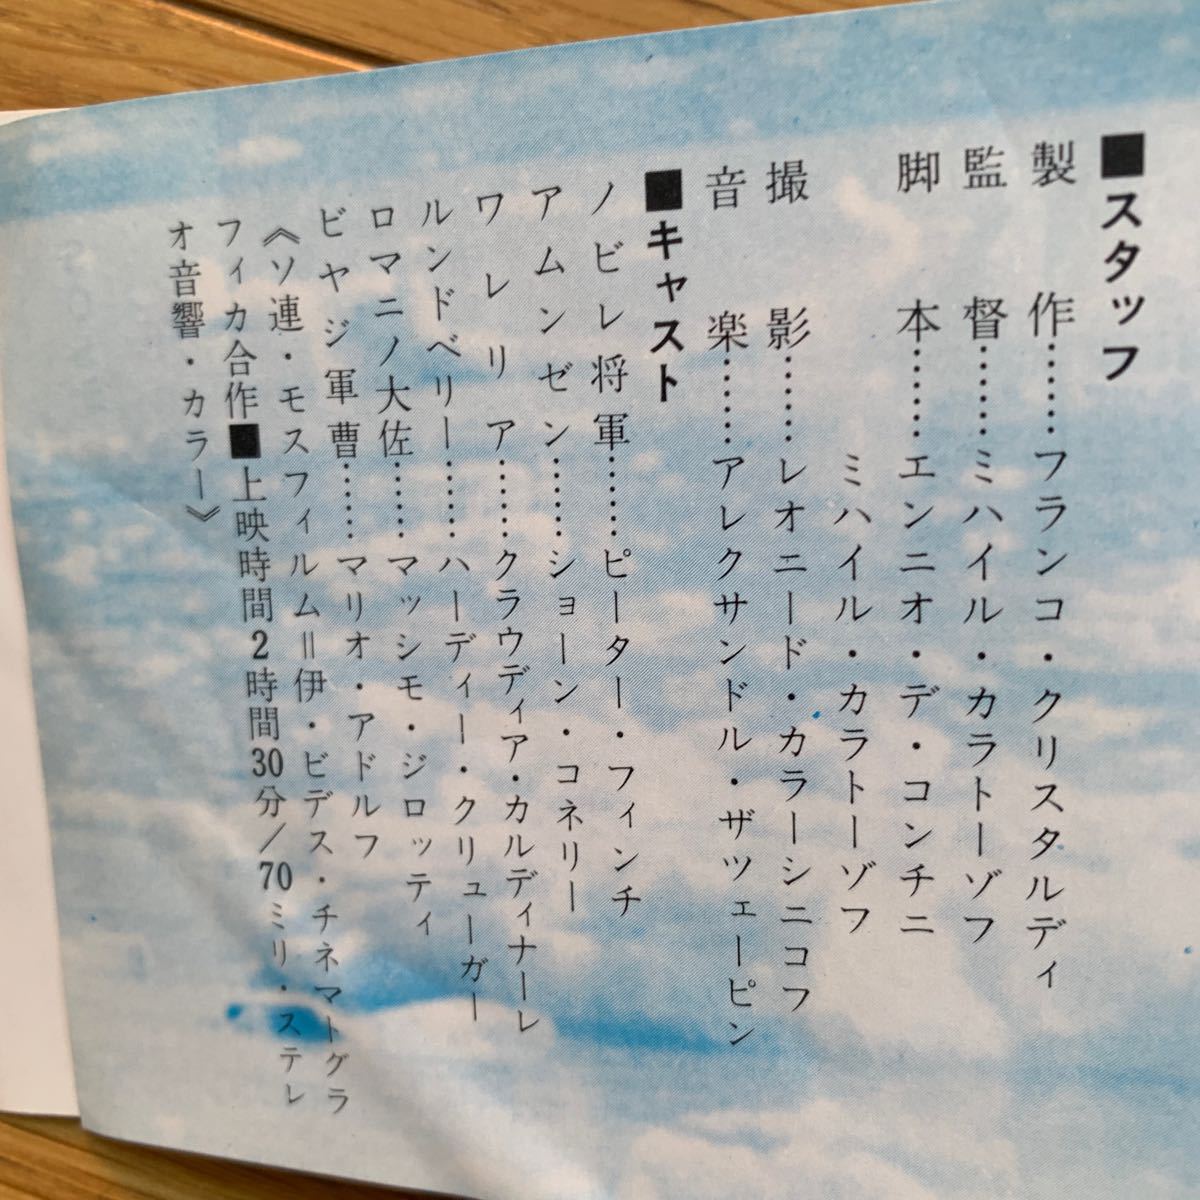 ■スタッフ
製　作……フランコ・クリスタルディ
監　督……ミハイル・カラトーゾフ
脚　本……エンニオ・デ・コンチニ
ミハイル・カラトーゾフ
撮　影……レオニード・カラーシニコフ
音　楽……アレクサンドル・ザツェーピン
■キャスト
ノビレ将軍……ピーター・フィンチ
アムンゼン……ショーン・コネリー
ワレリア……クラウディア・カルディナーレ
ルンドベリー……ハーディー・クリューガー
ロマニノ大佐……マッシモ・ジロッティ
ビヤジ軍曹……マリオ・アドルフ
《ソ連・モスフィルム＝伊・ビデス・チネマトグラ
フィカ合作■上映時間2時間30分／70ミリ・ステレ
オ音響・カラー》